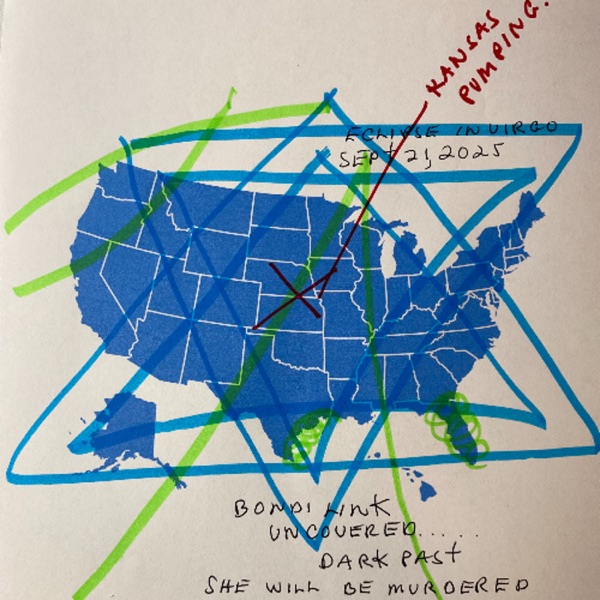 KANSAS
PUMPING.
ECLIPSE IN VIRGO
SEPT 21, 2025
BONDI LINK
UNCOVERED......
DARK PAST
SHE WILL BE MURDERED